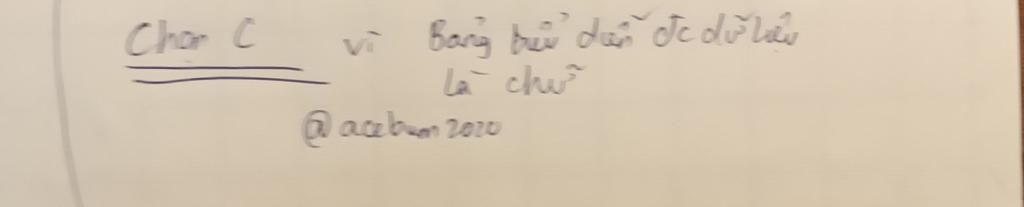 Chọn C vì Bảng biểu diễn đc dữ liệu
là chữ
@acebum2020